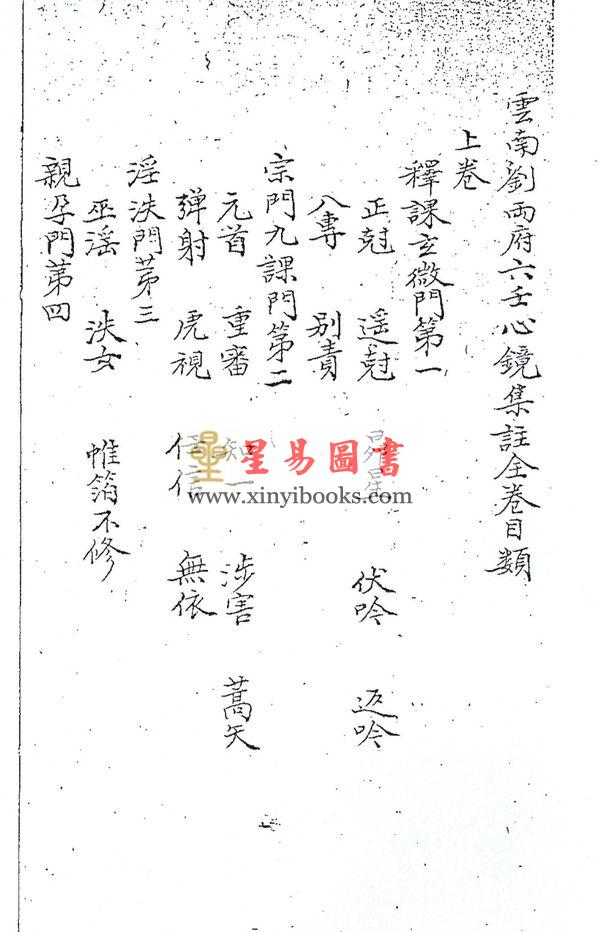 雲南劉兩府六壬心鏡集註全卷目類
上卷
釋課玄微門第一
正尅 遥尅 昴星 伏吟 返吟
八專 别責
宗門九課門第二
元首 重審 知一 涉害 蒿矢
弹射 虎視 信 無依
淫泆門苐三
巫滛 泆女 帷箔不修
親孕門苐四
星易圖書
www.xinyibooks.com